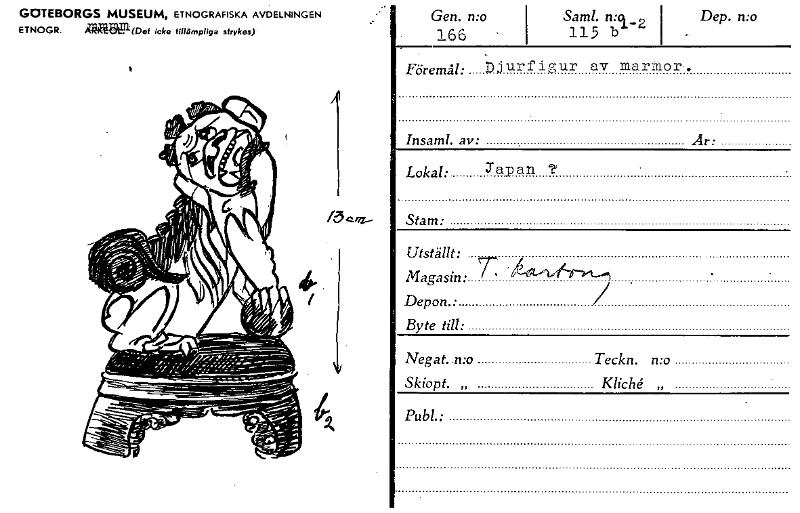 GÖTEBORGS MUSEUM, ETNOGRAFISKA AVDELNINGEN
ETNOGR. ARKEOL. (Det icke tillämpliga strykes)
13 cm
b1
b2
Gen. n:o Saml. n:o Dep. n:o
166 115 b1-2
Föremål: Djurfigur av marmor.
Insaml. av: År:
Lokal: Japan ?
Stam:
Utställt:
Magasin: T. kartong
Depon.:
Byte till:
Negat. n:o Teckn. n:o
Skiopt. „ Kliché „
Publ.: